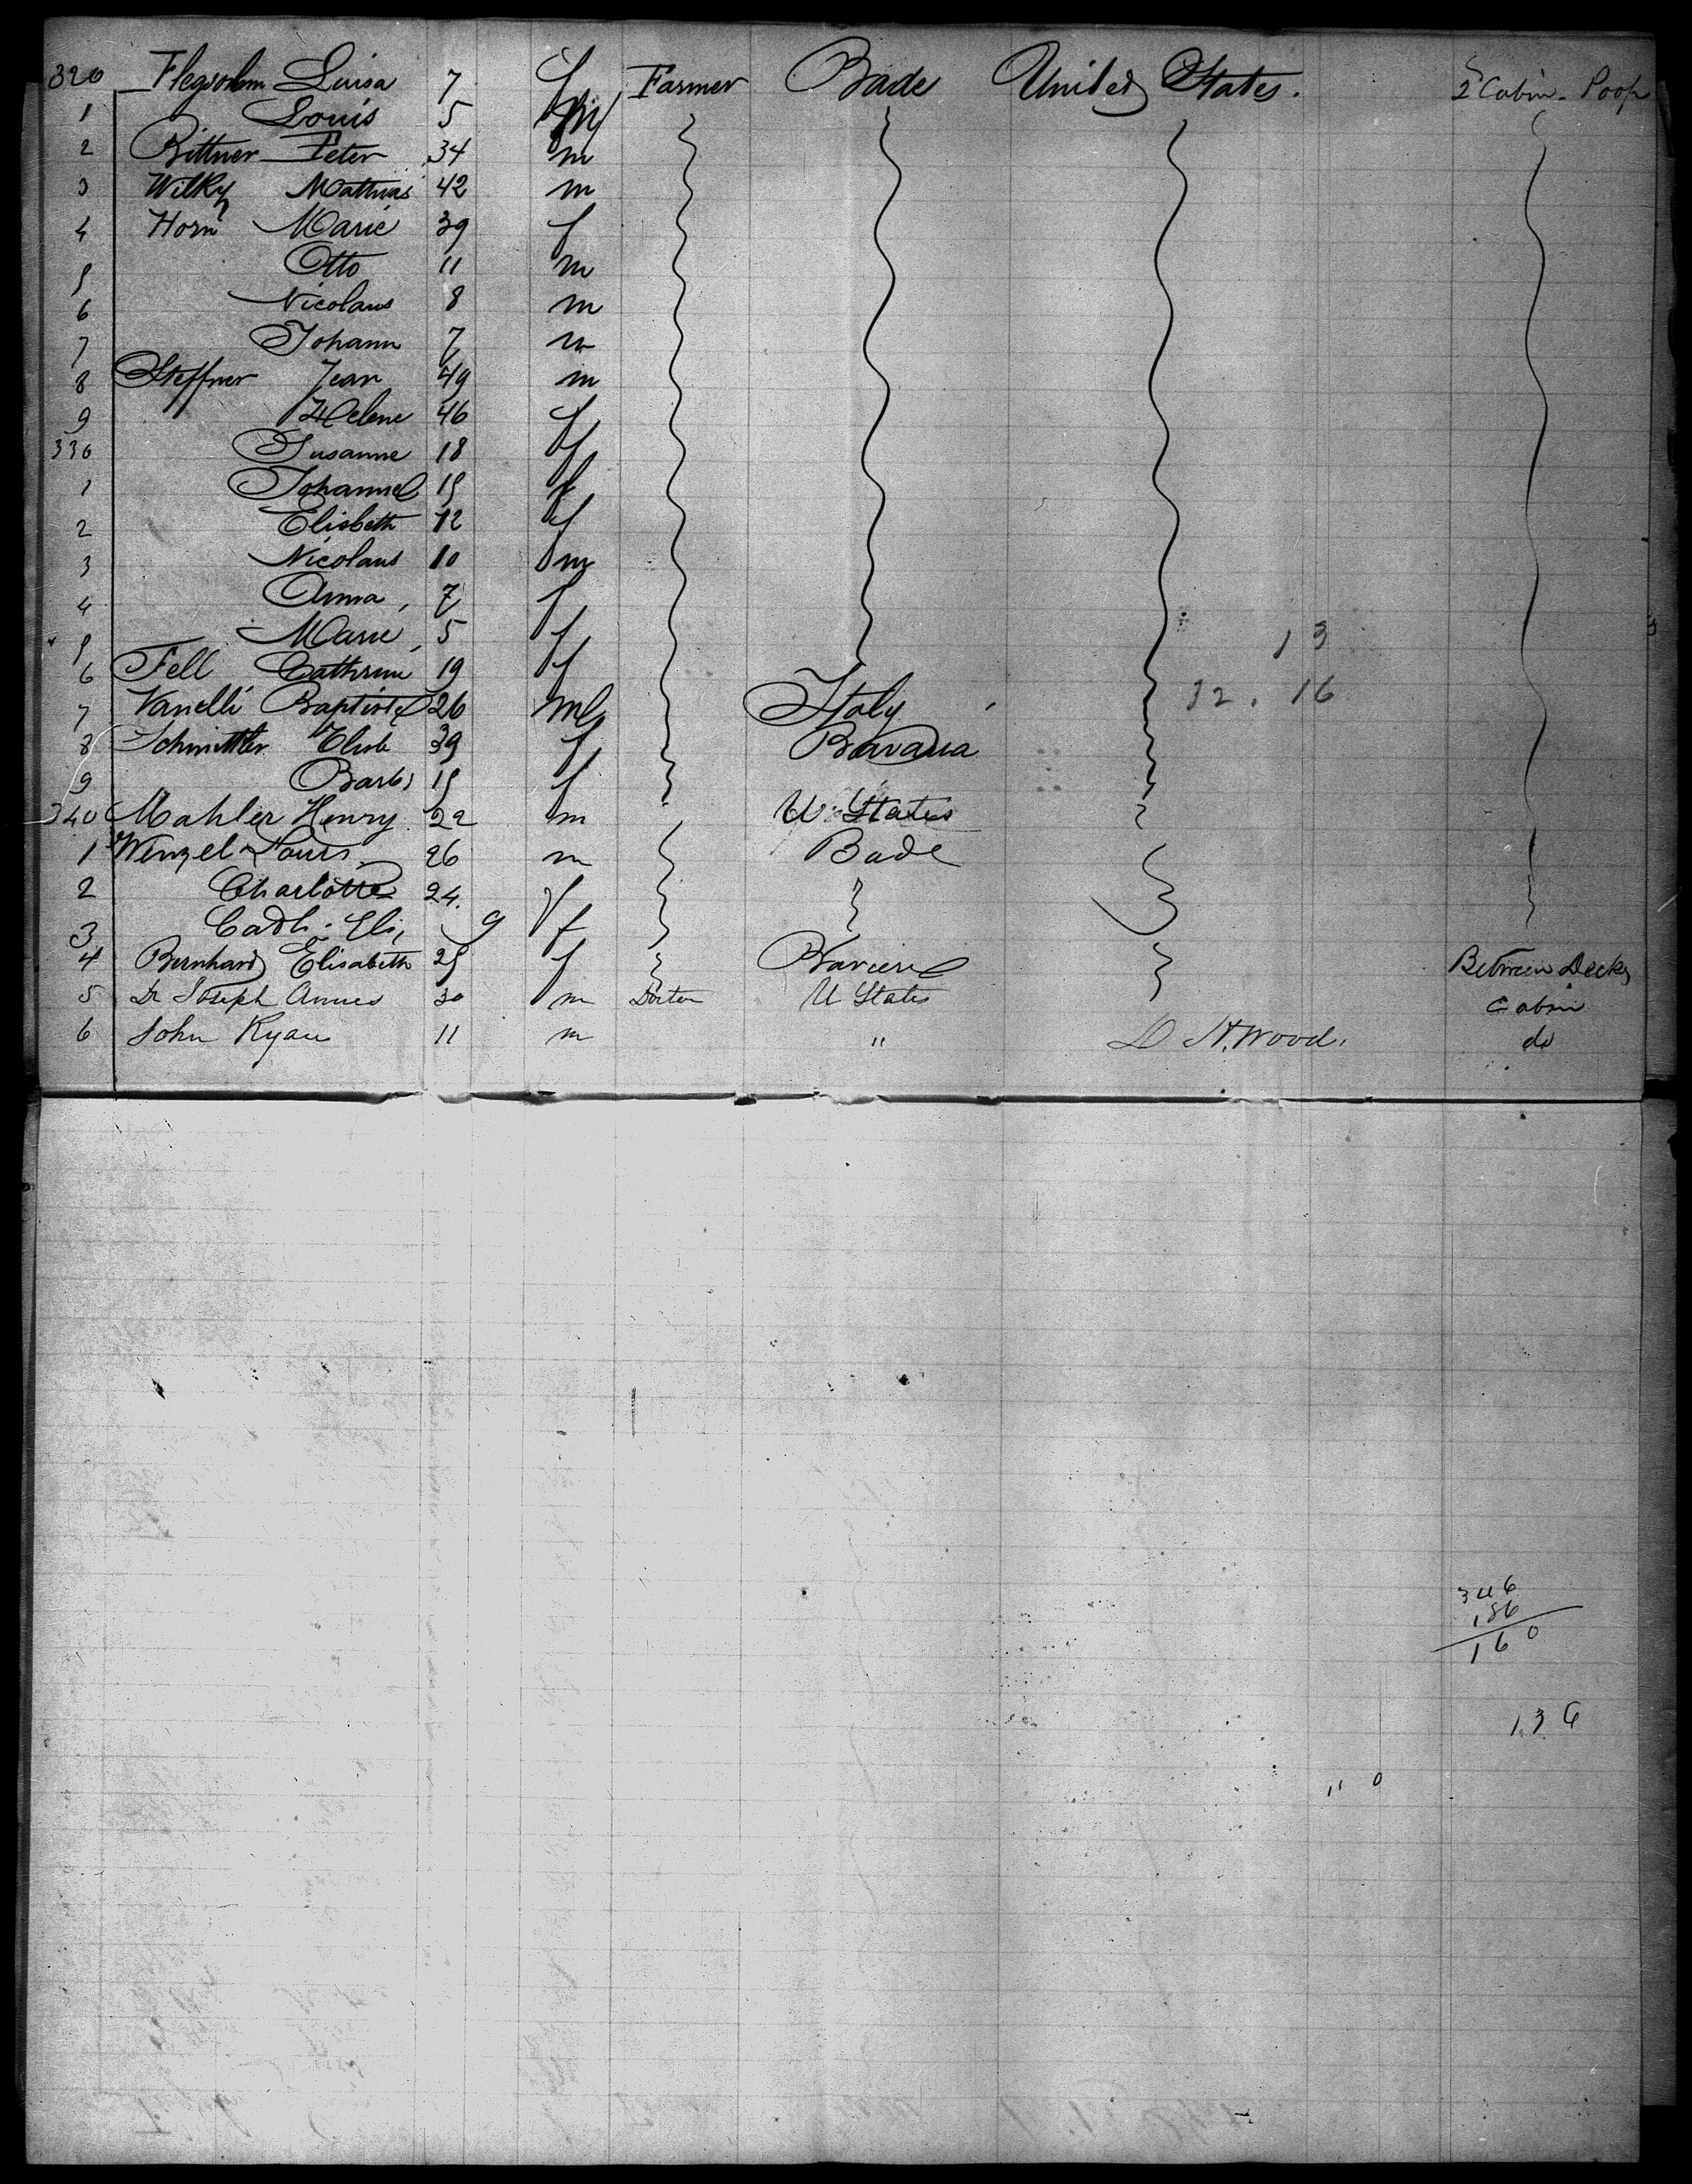 320 Luisa 7 f Farmer Bade United States. 2 Cabin - Poop
1 Louis 5 m
2 Bittner Peter 34 m
3 Wilky Mathias 42 m
4 Horn Marie 39 f
5 Otto 11 m
6 Nicolaus 8 m
7 Johann 7 m
8 Steffner Jean 49 m
9 Helene 46 f
330 Susanne 18 f
1 Johanne 15 f
2 Elisbeth 12 f
3 Nicolaus 10 m
4 Anna, 7 f
5 Marie, 5 f 13
6 Fell Cathrine 19 f
7 Vanelli Baptiste 26 m Italy 32. 16
8 39 f Bavaria
9 Barb 15 f
340 Mahler Henry 22 m U States
1 Wenzel Louis 26 m Bade
2 Charlotte 24. f
3 Cath. Eli, 9 f
4 Bernhard Elisabeth 25 f Baviere Between Decks
5 Dr Joseph 30 m U States Cabin
6 John Ryan 11 m " D H. Wood. do
346
186
160
136
11 0